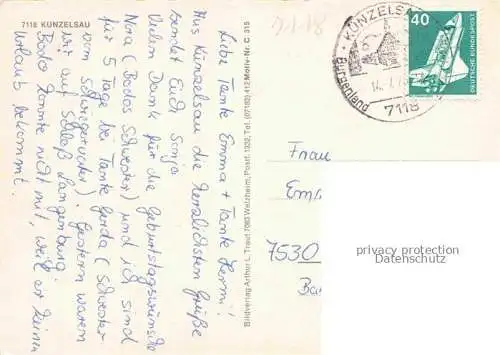 7118 KÜNZELSAU
Liebe Tante Emma + Tante Hermi!
Aus Künzelsau die herzlichsten Grüße
sendet Euch Sonja
Vielen Dank für die Geburtstagswünsche
Nora (Bodos Schwester) und ich sind
für 5 Tage bei Tante Gerda (Schwester
vom Schwiegervater). Gestern waren
wir auf Schloß Langenburg.
Bodo konnte nicht mit, weil er keinen
Urlaub bekommt.
Bildverlag Arthur L. Traut 7063 Welzheim, Postf. 1332, Tel. (07182) 412 Motiv-Nr. C 315
KÜNZELSAU
Burgenland
7118
40
DEUTSCHE BUNDESPOST
Frau
7530
privacy protection
Datenschutz